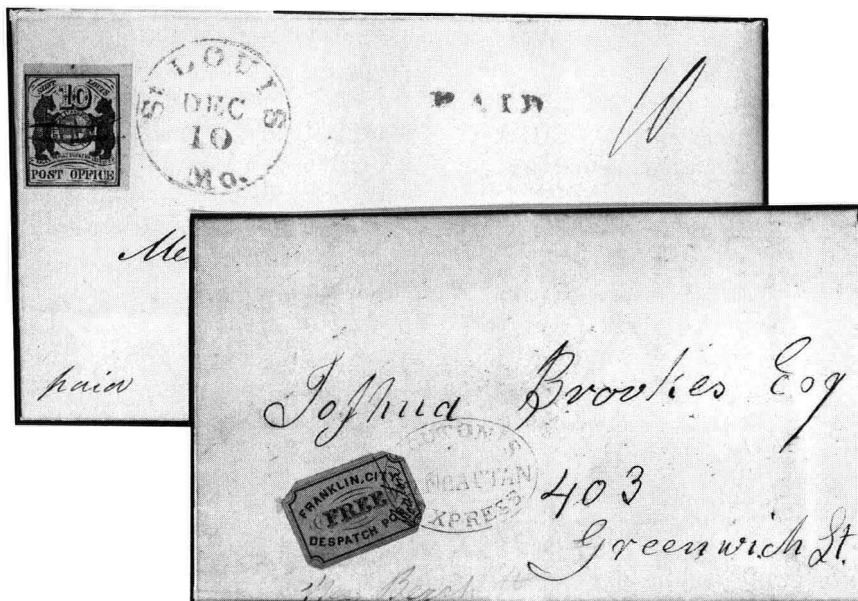 SAINT LOUIS
10
POST OFFICE
St LOUIS
DEC
10
Mo.
PAID
10
Me
paid
Joshua Brookes Esq
403
Greenwich St.
FRANKLIN, CITY
FREE
DESPATCH PO
NHATTAN
XPRESS